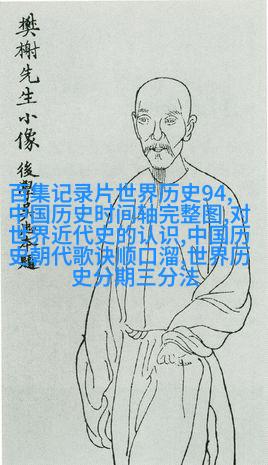 樊榭先生小像
後學
題
百集记录片世界历史94,
中国历史时间轴完整图,对
世界近代史的认识,中国历
史朝代歌诀顺口溜,世界历
史分期三分法